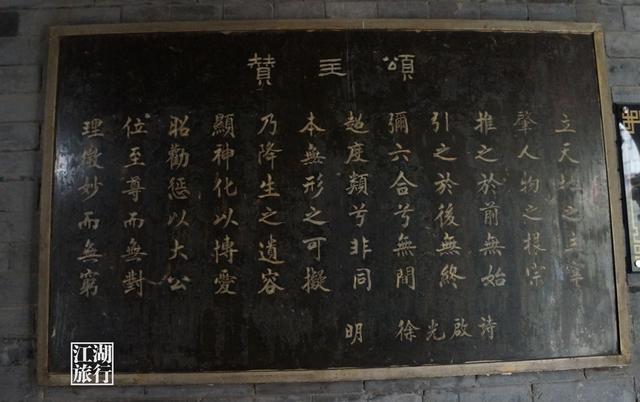 頌主贊
立天地之主宰
肇人物之根宗
推之於前無始
引之於後無終
彌六合兮無間
超度類兮非同
本無形之可擬
乃降生之遺容
顯神化以博愛
昭勸懲以大公
位至尊而無對
理微妙而無窮
明 徐光啟詩
江湖
旅行